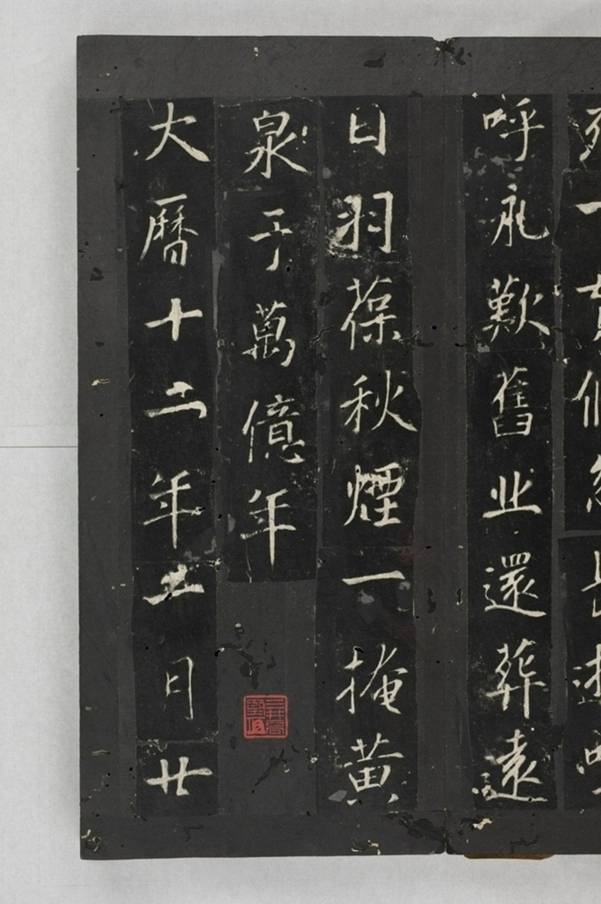 呼永歎舊业還葬遠
日羽葆秋煙一掩黄
泉千萬億年
大曆十二年十一月廿